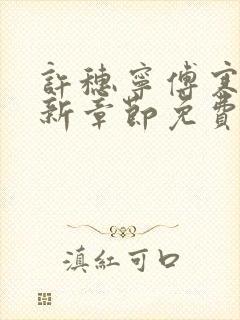 許穗寧傅寒
新章節免費
滇紅可口